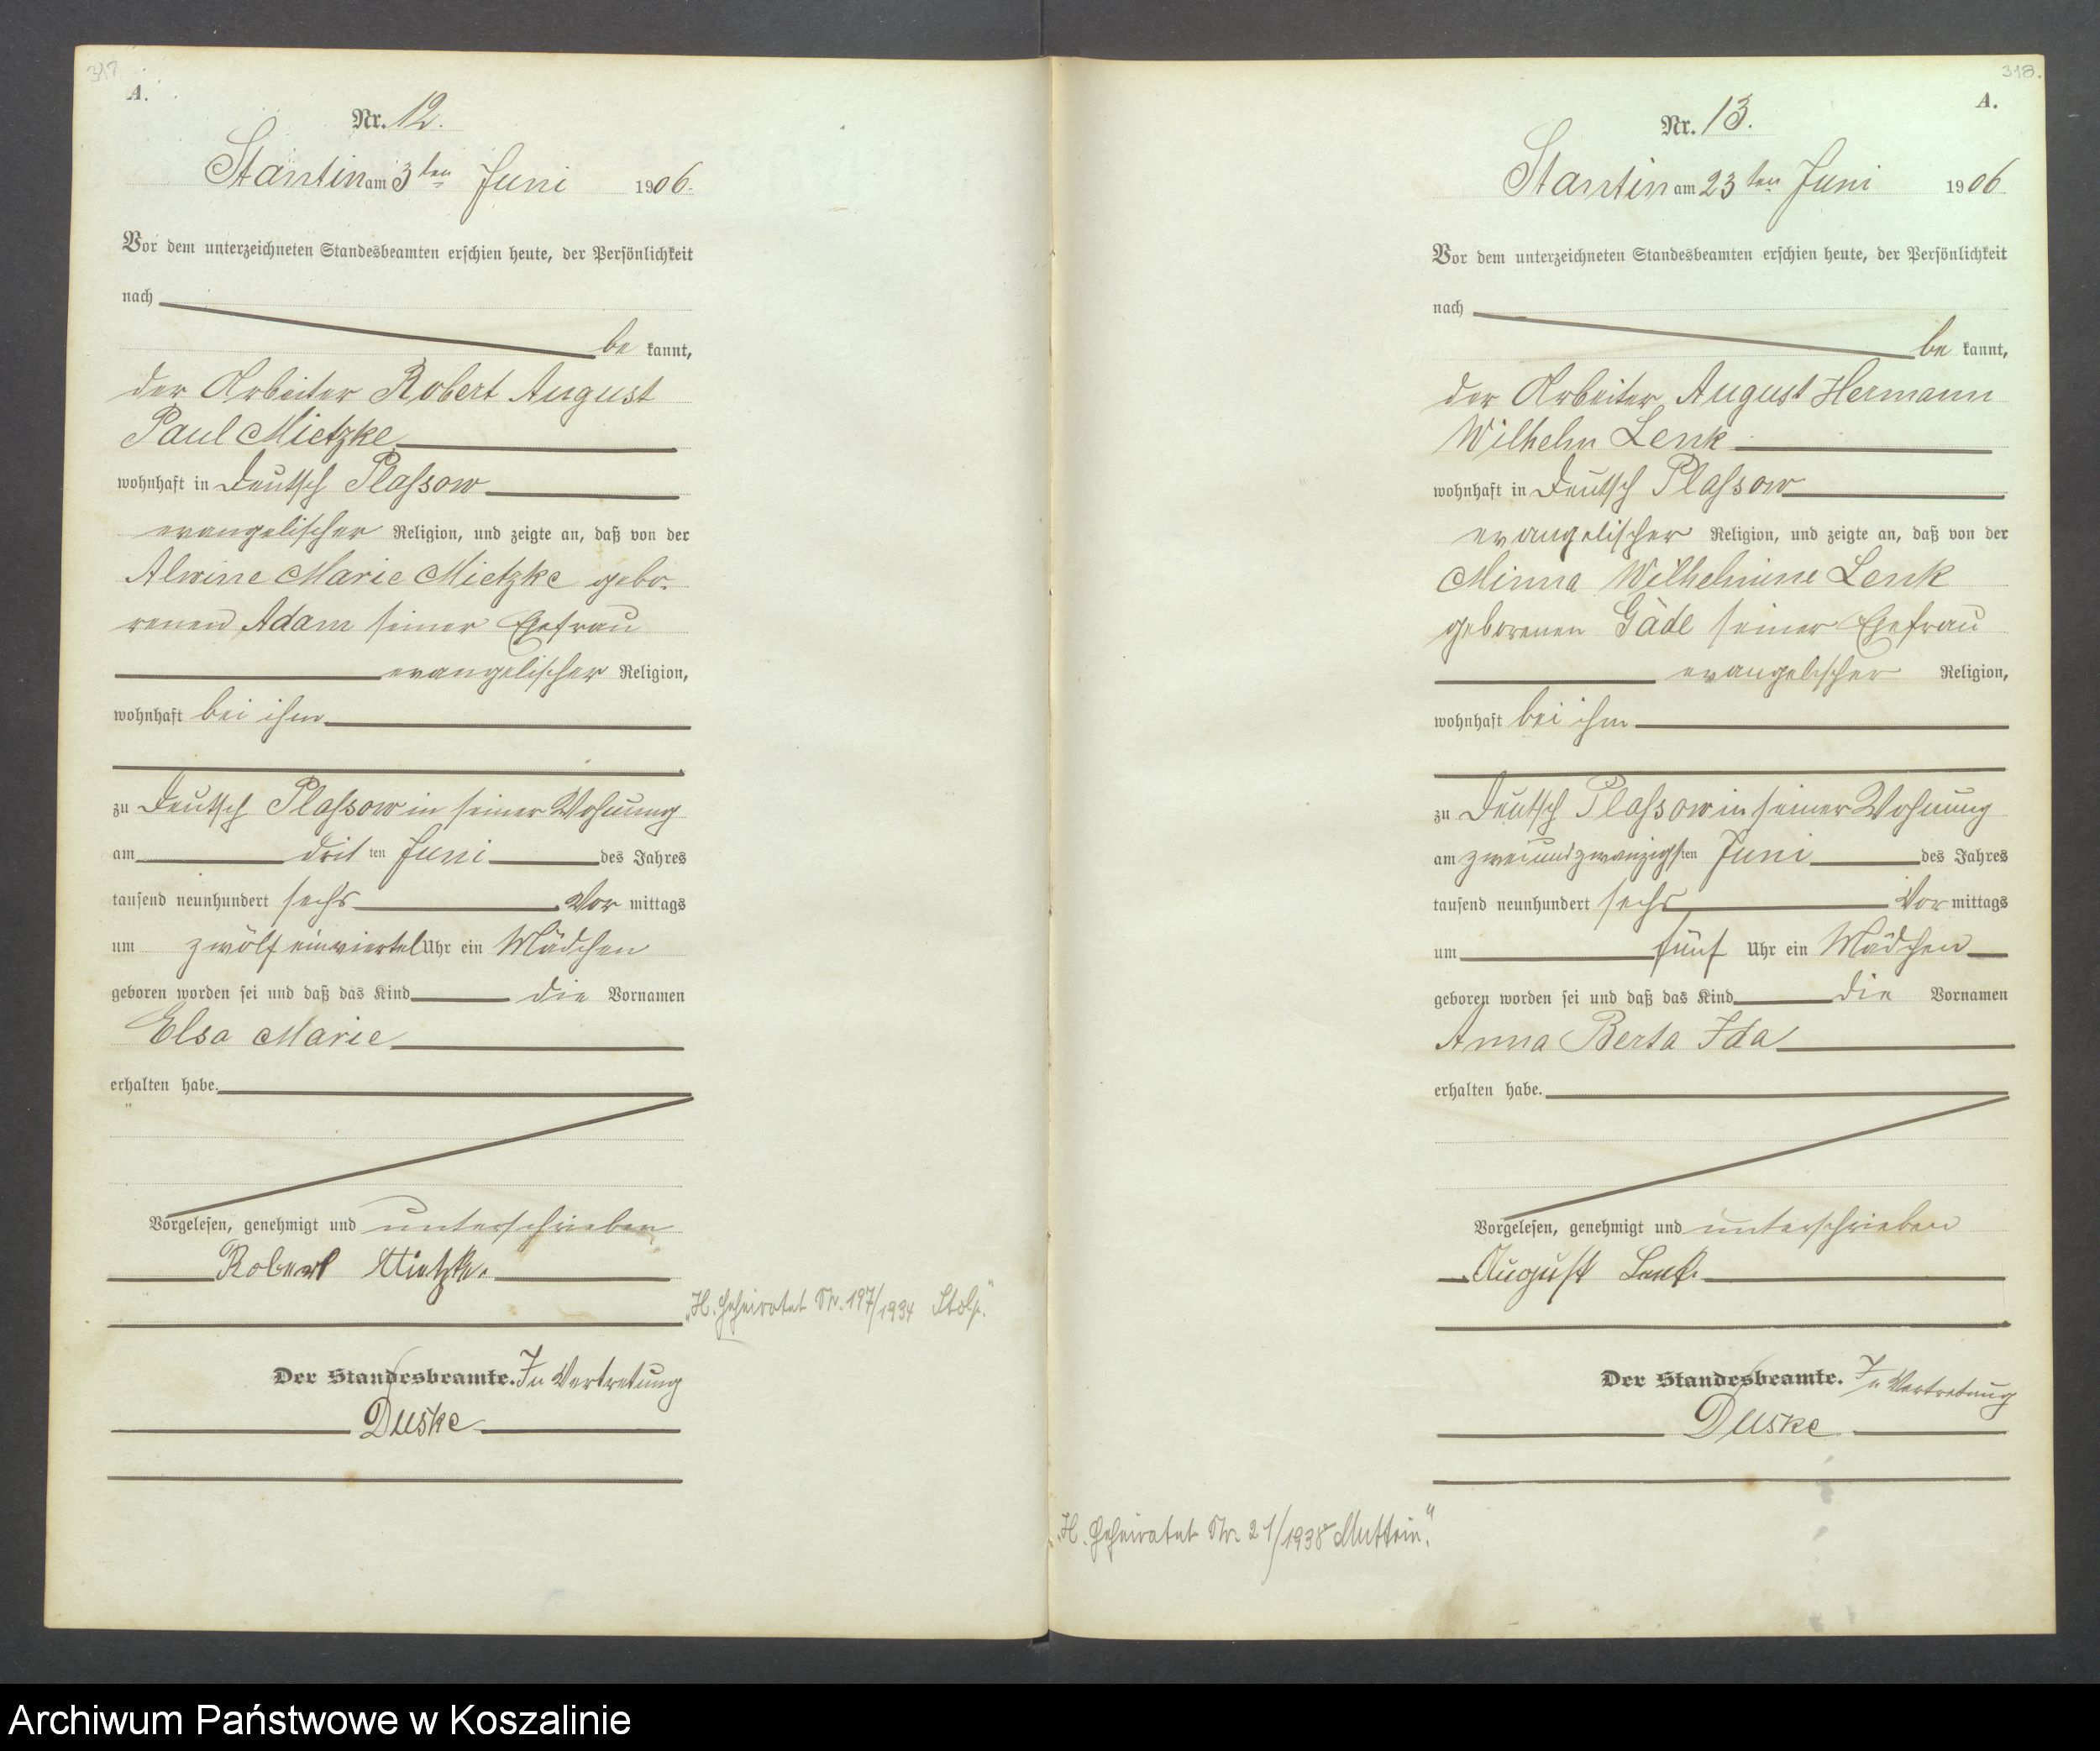 317.
A.
Nr. 12.
Stantin am 3ten Juni 1906.
Vor dem unterzeichneten Standesbeamten erschien heute, der Persönlichkeit
nach
be kannt,
der Arbeiter Robert August
Paul Mietzke
wohnhaft in Deutsch Plassow
evangelischer Religion, und zeigte an, daß von der
Alwine Marie Mietzke gebo-
renen Adam seiner Ehefrau
evangelischer Religion,
wohnhaft bei ihm
zu Deutsch Plassow in seiner Wohnung
am drit ten Juni des Jahres
tausend neunhundert sechs Vor mittags
um zwölf einviertel Uhr ein Mädchen
geboren worden sei und daß das Kind die Vornamen
Elsa Marie
erhalten habe.
Vorgelesen, genehmigt und unterschrieben
Robert Mietzke
„H. Geheiratet Nr. 197/1934 Stolp."
Der Standesbeamte. In Vertretung
Duske
318.
A.
Nr. 13.
Stantin am 23ten Juni 1906
Vor dem unterzeichneten Standesbeamten erschien heute, der Persönlichkeit
nach
be kannt,
der Arbeiter August Hermann
Wilhelm Lenk
wohnhaft in Deutsch Plassow
evangelischer Religion, und zeigte an, daß von der
Minna Wilhelmine Lenk
geborenen Gäde seiner Ehefrau
evangelischer Religion,
wohnhaft bei ihm
zu Deutsch Plassow in seiner Wohnung
am zweiundzwanzigsten Juni des Jahres
tausend neunhundert sechs Vor mittags
um fünf Uhr ein Mädchen
geboren worden sei und daß das Kind die Vornamen
Anna Berta Ida
erhalten habe.
Vorgelesen, genehmigt und unterschrieben
August Lenk.
Der Standesbeamte. In Vertretung
Duske
„H. Geheiratet Nr. 21/1938 Muttrin."
Archiwum Państwowe w Koszalinie